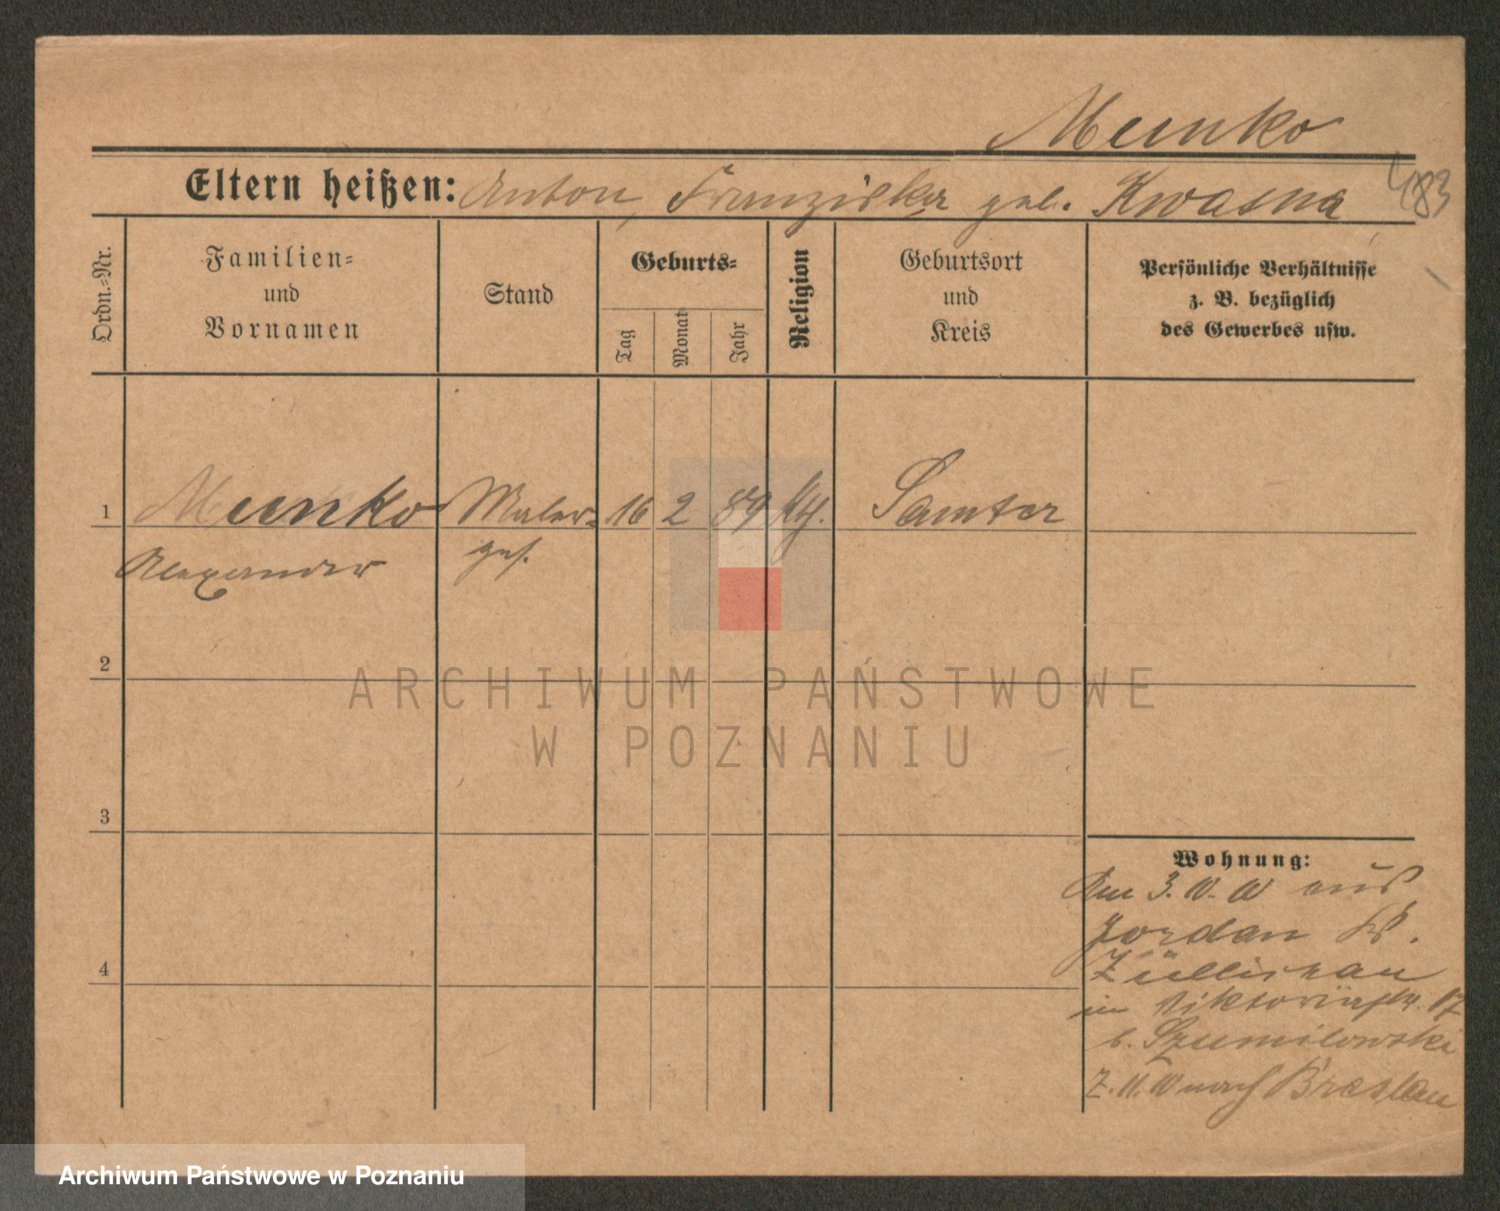 Munko
Eltern heißen: Anton, Franziska geb. Kwasna
483
Ordn.-Nr.
Familien-
und
Vornamen
Stand
Geburts-
Tag
Monat
Jahr
Religion
Geburtsort
und
Kreis
Persönliche Verhältnisse
z. B. bezüglich
des Gewerbes usw.
1 Munko Maler- 16 2 89 kth. Samter
Alexander geh.
2
3
4
Wohnung:
Am 3. 10. 10 aus
Jordan Kr.
Züllichau
in Viktoriastr. 17
b. Szumilowski
2. 11. 10 nach Breslau
ARCHIWUM PAŃSTWOWE
W POZNANIU
Archiwum Państwowe w Poznaniu